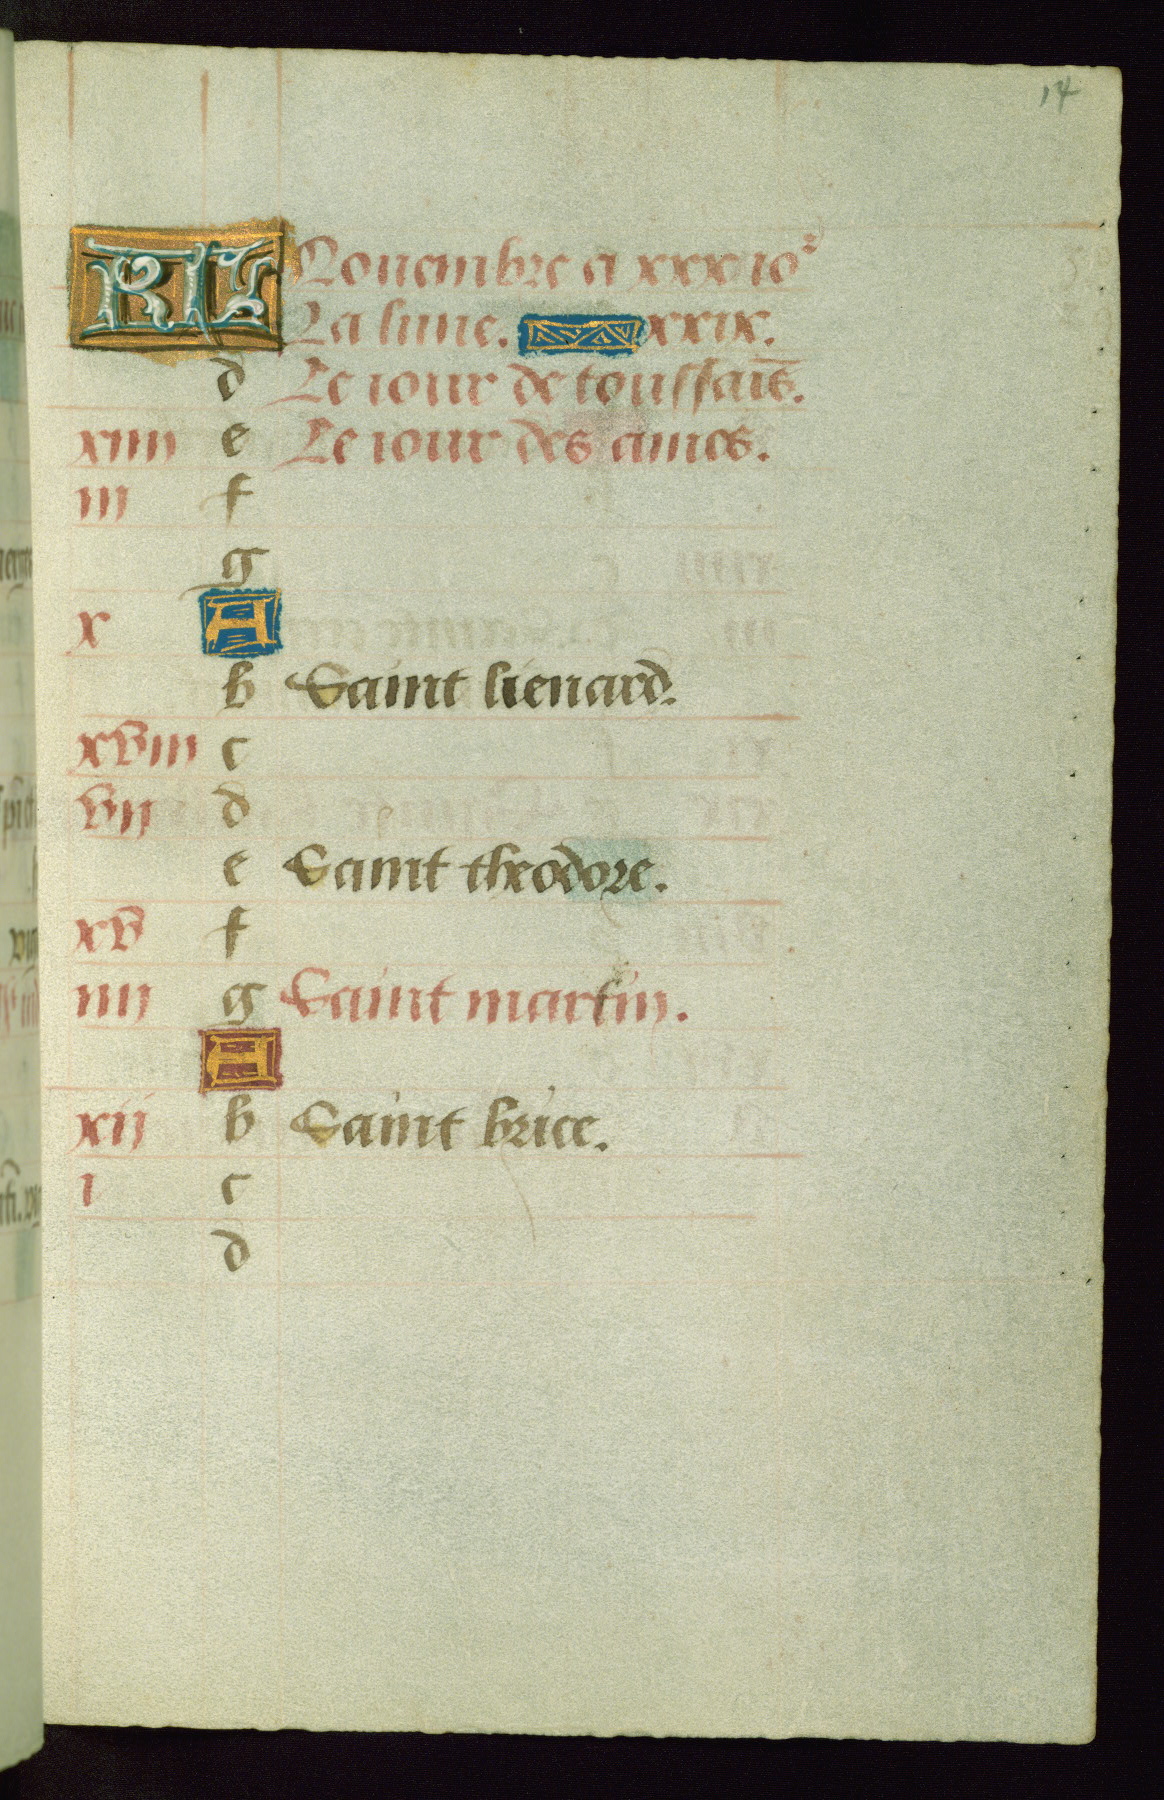 14
KL Nouembre a xxx io^s
La lune. xxix.
d Le iour de toussaīs.
xiiii e Le iour des ames.
iii f
g
x A
b Saint lienard.
xviii c
vii d
e Saint theodore.
xv f
iiii g Saint martin.
A
xii b Saint brice.
i c
d